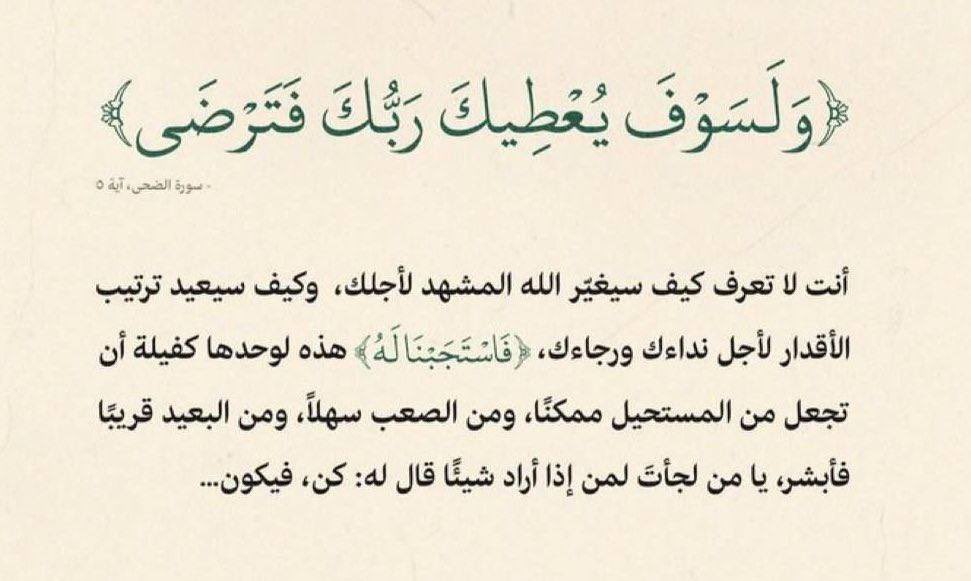 ﴿وَلَسَوْفَ يُعْطِيكَ رَبُّكَ فَتَرْضَى﴾
- سورة الضحى، آية ٥
أنت لا تعرف كيف سيغيّر الله المشهد لأجلك، وكيف سيعيد ترتيب
الأقدار لأجل نداءك ورجاءك، ﴿فَاسْتَجَبْنَا لَهُ﴾ هذه لوحدها كفيلة أن
تجعل من المستحيل ممكنًا، ومن الصعب سهلاً، ومن البعيد قريبًا
فأبشر، يا من لجأتَ لمن إذا أراد شيئًا قال له: كن، فيكون...